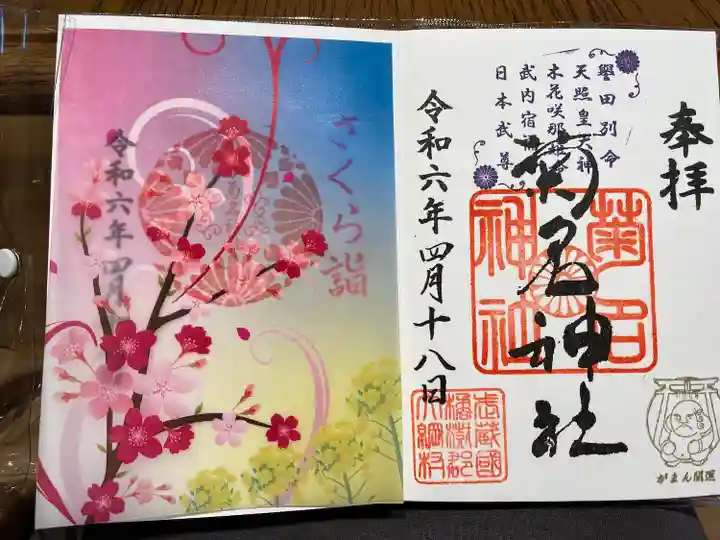 奉拝
譽田別命
天照皇大神
木花咲
武内宿
日本武尊
菊名神社
菊名神社
令和六年四月十八日
武蔵國
橘樹郡
大綱村
がまん開運
さくら詣
令和六年四月